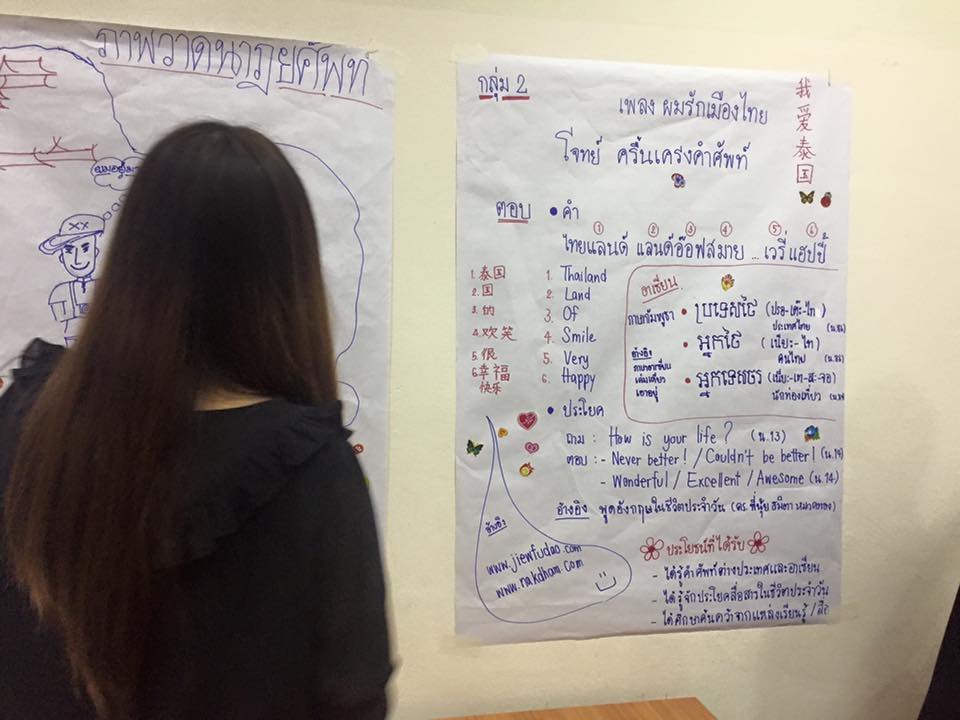 ภาพวาดนาฏยศัพท์
กลุ่ม 2
เพลง ผมรักเมืองไทย
我爱泰国
โจทย์ ครื้นเครงคำศัพท์
ตอบ • คำ
① ② ③ ④ ⑤ ⑥
ไทยแลนด์ แลนด์อ๊อฟสมาย ... เวรี่ แฮปปี้
1. 泰国
2. 国
3. 的
4. 欢笑
5. 很
6. 幸福
快乐
1. Thailand
2. Land
3. Of
4. Smile
5. Very
6. Happy
อาเซียน
ภาษากัมพูชา
• ប្រទេសថៃ (ปรอ-เต๊ะ-ไท)
ประเทศไทย
• អ្នកថៃ (เนี่ยะ-ไท)
คนไทย
• អ្នកទេសចរ (เนี่ยะ-เท-สะ-จอ)
นักท่องเที่ยว
อ้างอิง
ภาษาอาเซียน
เล่มเดียว
เอาอยู่
• ประโยค
ถาม : How is your life? (น.13)
ตอบ : - Never better! / Couldn't be better! (น.14)
- Wonderful / Excellent / Awesome (น.14)
อ้างอิง พูดอังกฤษในชีวิตประจำวัน
อ้างอิง
www.jiewfudao.com
www.nakdham.com
ประโยชน์ที่ได้รับ
- ได้รู้คำศัพท์ต่างประเทศและอาเซียน
- ได้รู้จักประโยคสื่อสารในชีวิตประจำวัน
- ได้ศึกษาค้นคว้าจากแหล่งเรียนรู้ / สื่อ